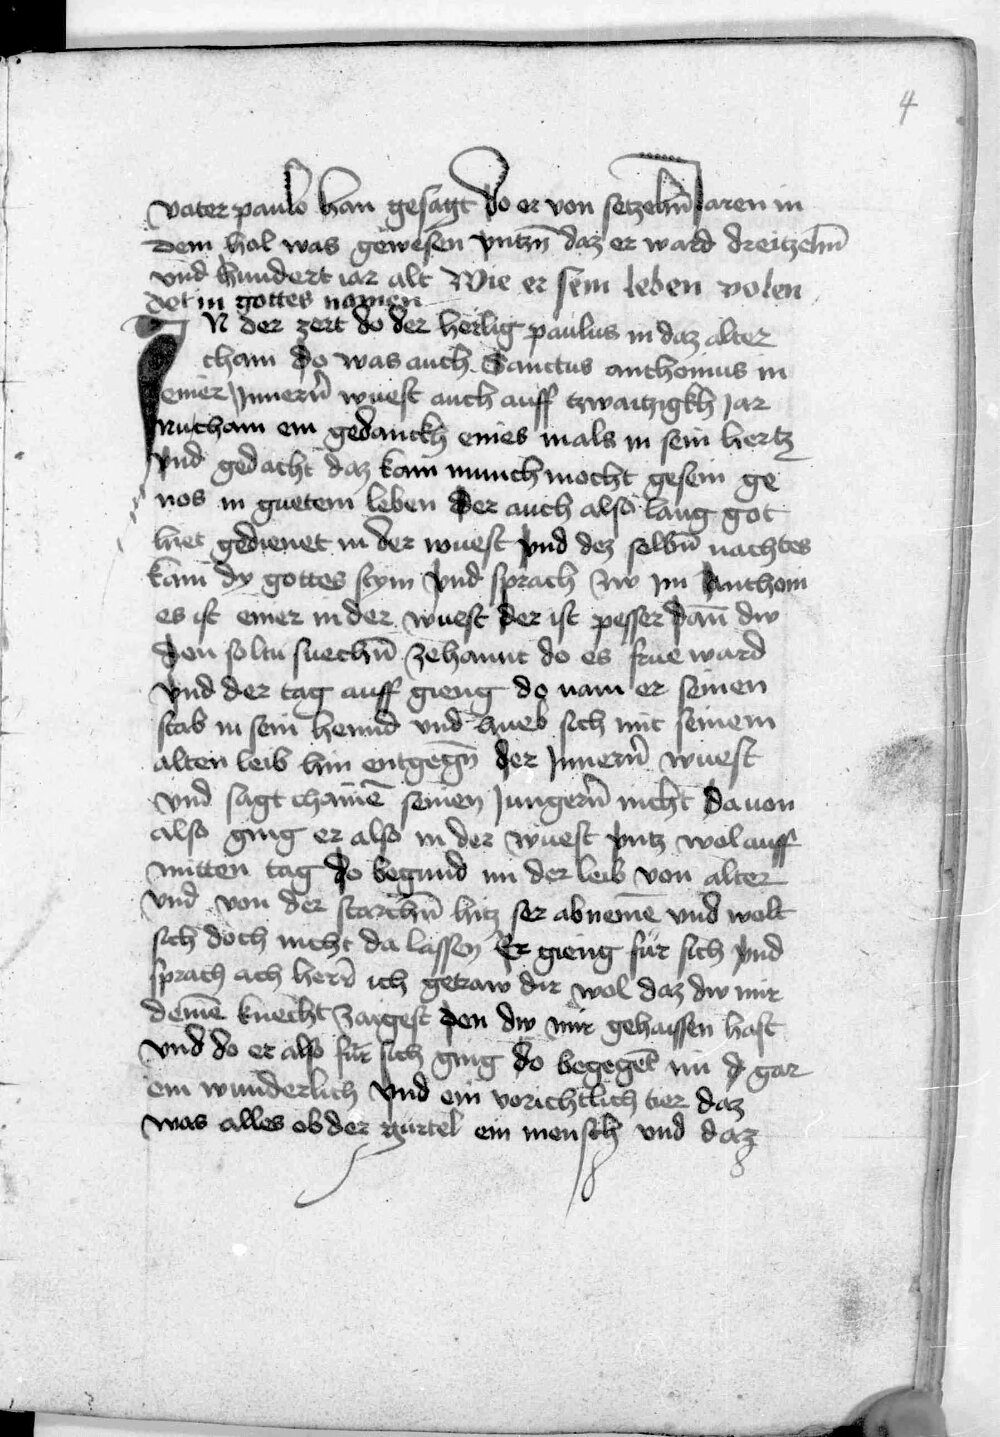 4
vater paulo han gesagt do er von setzehn̄ Jaren in
dem hol was gewesen vntzn̄ daz er ward dreitzehn̄
vnd hundert iar alt Wie er sein leben volen
det in gottes namen
IN der zeit do der heilig paulus in daz alter
cham do was auch Sanctus anthonius in
einer Innern̄ wuest auch auff tzwaitzigkh Jar
nu cham ein gedanckh eines mals in sein hertz
vnd gedacht daz kain munch mocht gesein ge
nos in guetem leben der auch also lang got
hiet gedienet in der wuest vnd dez selbn̄ nachtes
kam dy gottes stym vnd sprach zw im Anthoni
es ist einer in der wuest der ist pesser dan̄ dw
den soltu suechn̄ zehannt do es frue ward
vnd der tag auff gieng do nam er seinen
stab in sein hennd vnd hueb sich mit seinem
alten leib hin entgegn̄ der Innern̄ wuest
vnd sagt chainē seinen Jungern̄ nicht dauon
also ging er also in der wuest vntz wol auff
mitten tag do begund im der leib von alter
vnd von der starchn̄ hitz ser abnemē vnd wolt
sich doch nicht da lassen Er gieng für sich vnd
sprach ach her̄r ich getraw dir wol daz dw mir
deinē knecht zaigest den dw mir gehaissen hast
vnd do er also für sich ging do begegēt im d gar
ein wunderlich vnd ein vorichtlich tier daz
was alles ob der gürtel ein mensch vnd daz